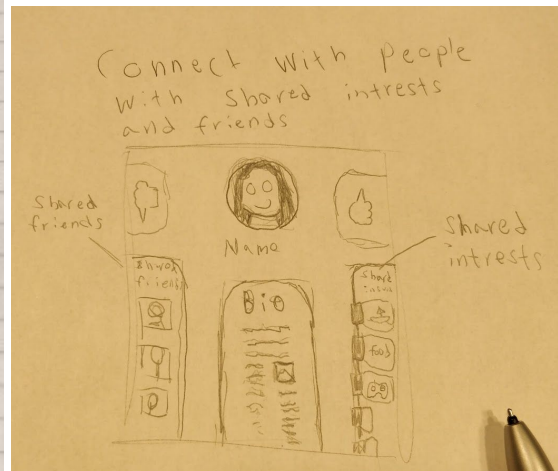 Connect with people
with shared intrests
and friends
Shared
friends
Name
Shared
intrests
friends
Bio
Share
food